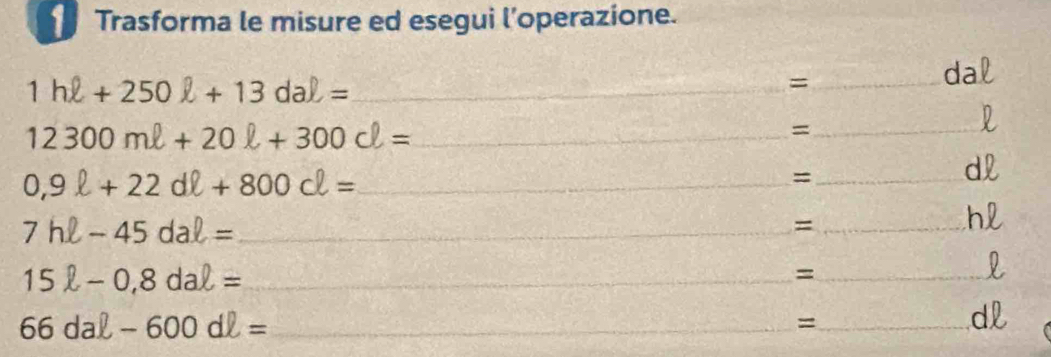 1 Trasforma le misure ed esegui l'operazione.
1 hℓ + 250 ℓ + 13 daℓ = ______ = ______ daℓ
12 300 mℓ + 20 ℓ + 300 cℓ = ______ = ______ ℓ
0,9 ℓ + 22 dℓ + 800 cℓ = ______ = ______ dℓ
7 hℓ – 45 daℓ = ______ = ______ hℓ
15 ℓ – 0,8 daℓ = ______ = ______ ℓ
66 daℓ – 600 dℓ = ______ = ______ dℓ